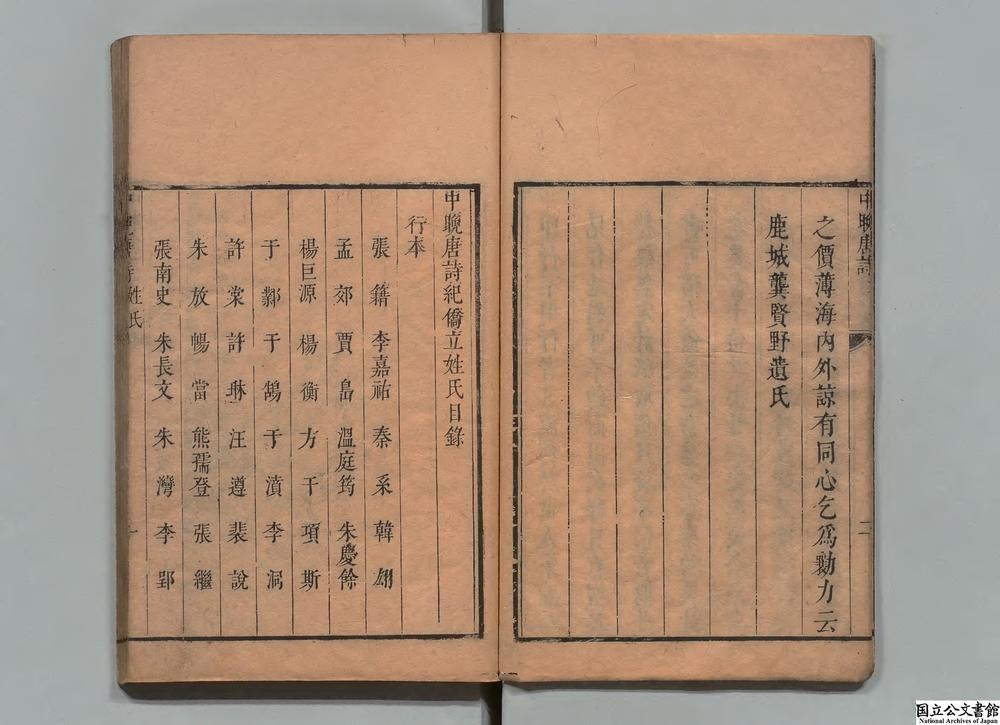 中晚唐詩
二
之價薄海內外諒有同心乞爲勷力云
鹿城龔賢野遺氏
中晚唐詩紀僑立姓氏目錄
行本
張籍 李嘉祐 秦系 韓翃
孟郊 賈島 溫庭筠 朱慶餘
楊巨源 楊衡 方干 項斯
于鄴 于鵠 于濆 李洞
許棠 許琳 汪遵 裴說
朱放 暢當 熊孺登 張繼
張南史 朱長文 朱灣 李郢
姓氏
一
国立公文書館
National Archives of Japan